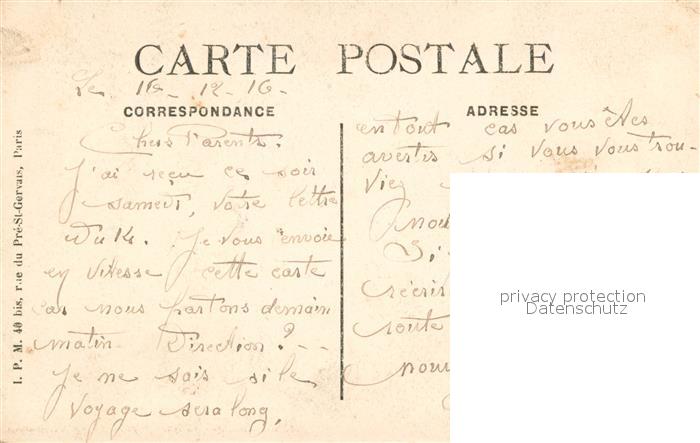 CARTE POSTALE
Le 16-12-16-
CORRESPONDANCE
Chers Parents.
J'ai reçu ce soir
samedi, votre lettre
du 14. Je vous envoie
en vitesse cette carte
car nous partons demain
matin Direction?--
Je ne sais si le
voyage sera long,
ADRESSE
en tout cas vous êtes
avertis si vous vous trou-
viez
nou
Si
récris
route
nou
privacy protection
Datenschutz
I. P. M. 40 bis, rue du Pré-St-Gervais, Paris